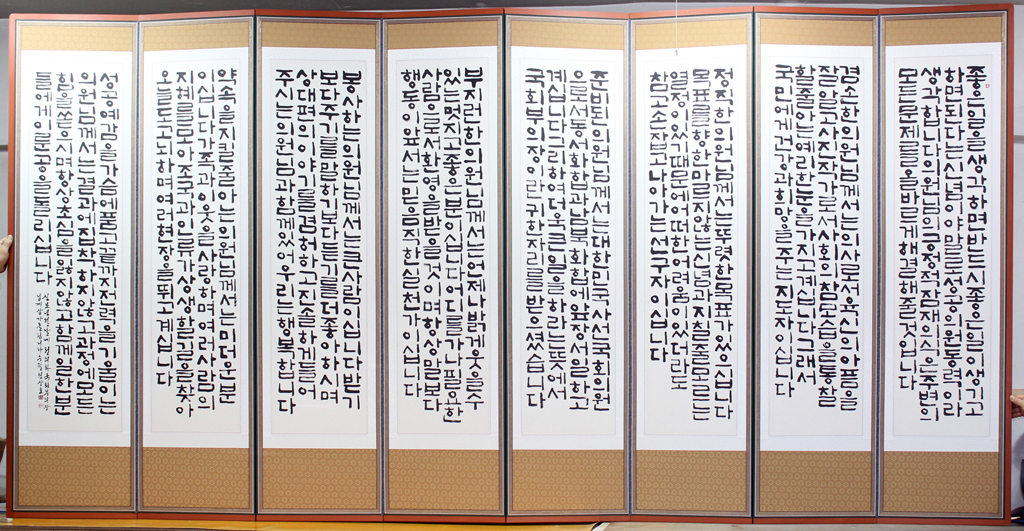 좋은일을생각하면반드시좋은일이생기고
하면된다는신념이야말로성공의원동력이라
생각합니다의원님의긍정적잠재의식은주변의
모든문제를올바르게해결해줄것입니다
겸손한의원님께서는의사로서육신의아픔을
잠알고사진작가로서사회의참모습을통찰
할줄아는예리한눈을가지고계십니다그래서
국민에게건강과희망을주는지도자이십니다
정직한의원님께서는뚜렷한목표가있으십니다
목표를향한마르지않는신념과지칠줄모르는
열정이있기때문에어떠한어려움이있더라도
참고손잡고나아가는선구자이십니다
준비된의원님께서는대한민국사선국회의원
으로서동서화합과남북화합에앞장서일하고
계십니다그리하여더욱큰일을하라는뜻에서
국회부의장이라는귀한자리를받으셨습니다
부지런한의원님께서는언제나밝게웃을수
있는멋지고좋은분이십니다어디를가나필요한
사람으로서환영을받을것이며항상말보다
행동이앞서는믿음직한실천가이십니다
봉사하는의원님께서는큰사람이십니다받기
보다주기를말하기보다듣기를더좋아하시며
상대편의이야기를겸허하고진솔하게들어
주시는의원님과함께있어우리는행복합니다
약속을지킬줄아는의원님께서는미더운분
이십니다가족과이웃을사랑하며여러사람의
지혜를모아조국과인류가상생할길을찾아
오늘도고뇌하며여러현장을뛰고계십니다
성공예감을가슴에품고끝까지전력을기울이는
의원님께서는결과에집착하지않고과정에모든
힘을쏟으시며항상초심을잃지않고함께일한분
들에게이룬공을돌리십니다